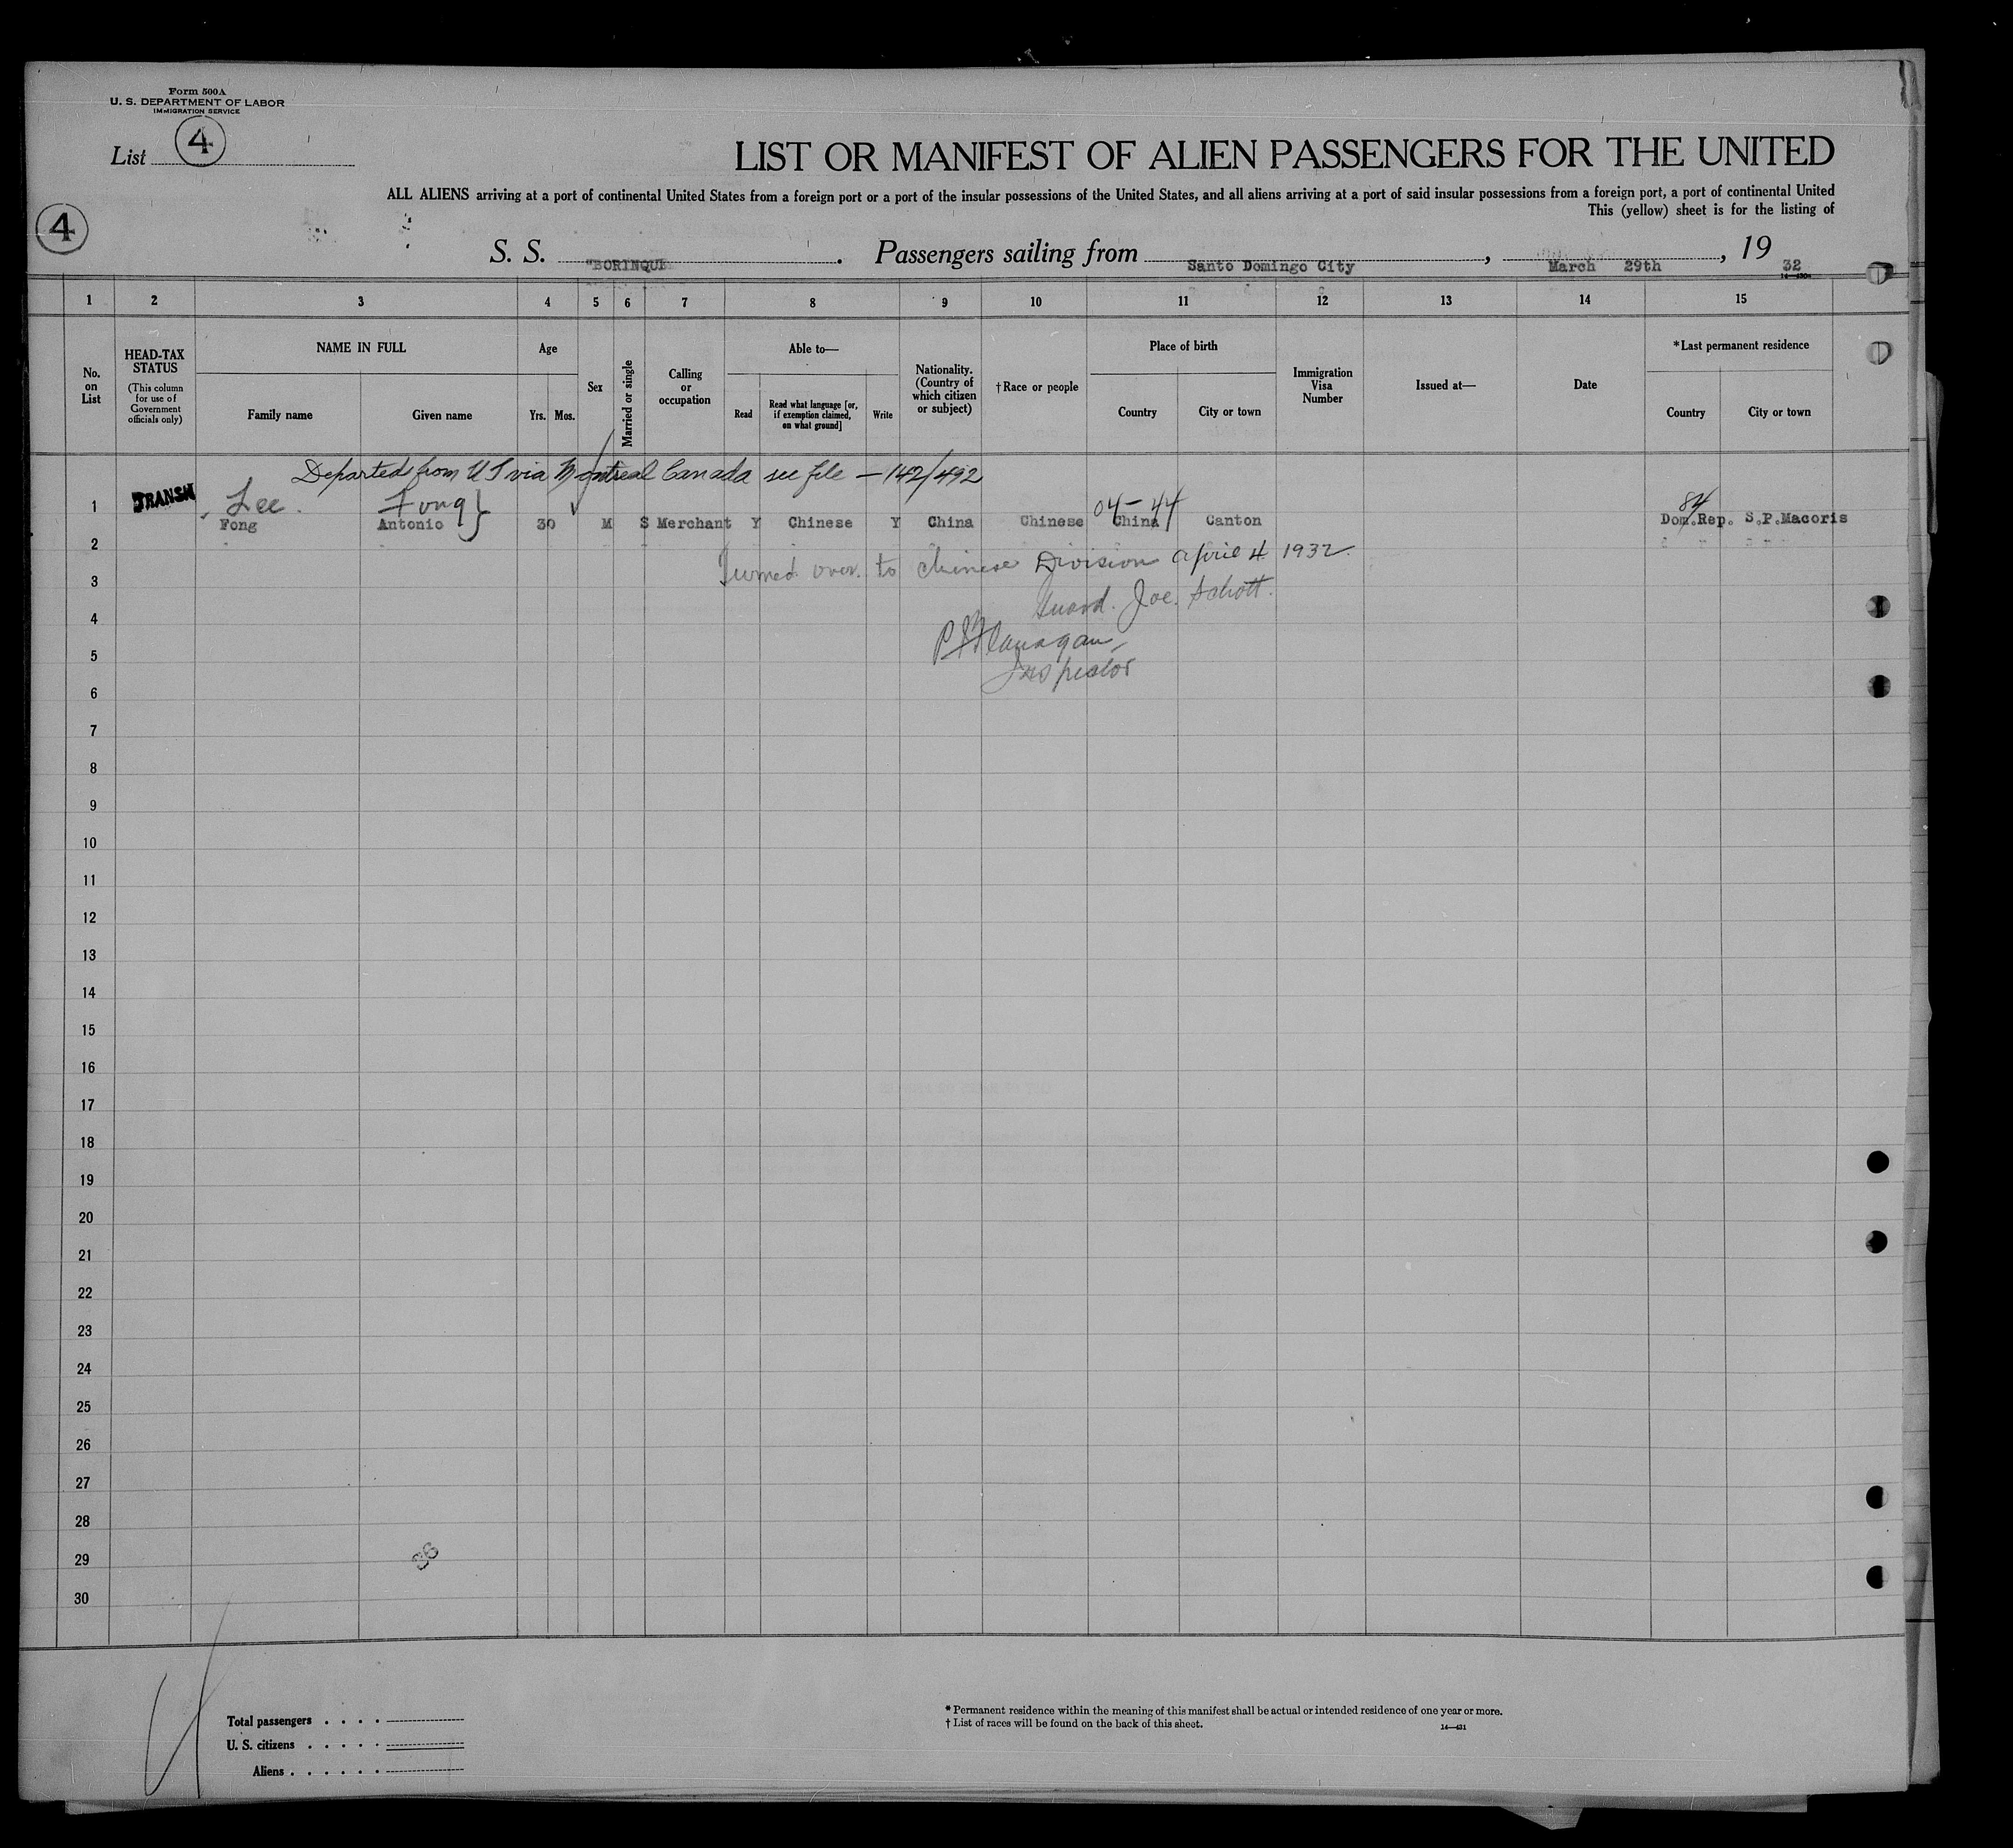 Form 500A
U. S. DEPARTMENT OF LABOR
IMMIGRATION SERVICE
List 4
LIST OR MANIFEST OF ALIEN PASSENGERS FOR THE UNITED
ALL ALIENS arriving at a port of continental United States from a foreign port or a port of the insular possessions of the United States, and all aliens arriving at a port of said insular possessions from a foreign port, a port of continental United
This (yellow) sheet is for the listing of
4
S. S. "BORINQUE . Passengers sailing from Santo Domingo City , March 29th , 19 32
1 2 3 4 5 6 7 8 9 10 11 12 13 14 15
No. on List
HEAD-TAX STATUS
(This column for use of Government officials only)
NAME IN FULL
Family name Given name
Age
Yrs. Mos.
Sex
Married or single
Calling or occupation
Able to—
Read
Read what language [or, if exemption claimed, on what ground]
Write
Nationality. (Country of which citizen or subject)
†Race or people
Place of birth
Country City or town
Immigration Visa Number
Issued at—
Date
*Last permanent residence
Country City or town
Departed from U S via Montreal Canada see file — 142/492
Lee Fong } 04-44 84
1 Fong Antonio 30 M S Merchant Y Chinese Y China Chinese China Canton Dom.Rep. S.P.Macoris
2 Turned over to Chinese Division April 4 1932.
3 Guard. Joe. Schott.
4 Flanagan,
5 Inspector
6
7
8
9
10
11
12
13
14
15
16
17
18
19
20
21
22
23
24
25
26
27
28
29
30
36
Total passengers
U. S. citizens
Aliens
* Permanent residence within the meaning of this manifest shall be actual or intended residence of one year or more.
† List of races will be found on the back of this sheet.
14—431